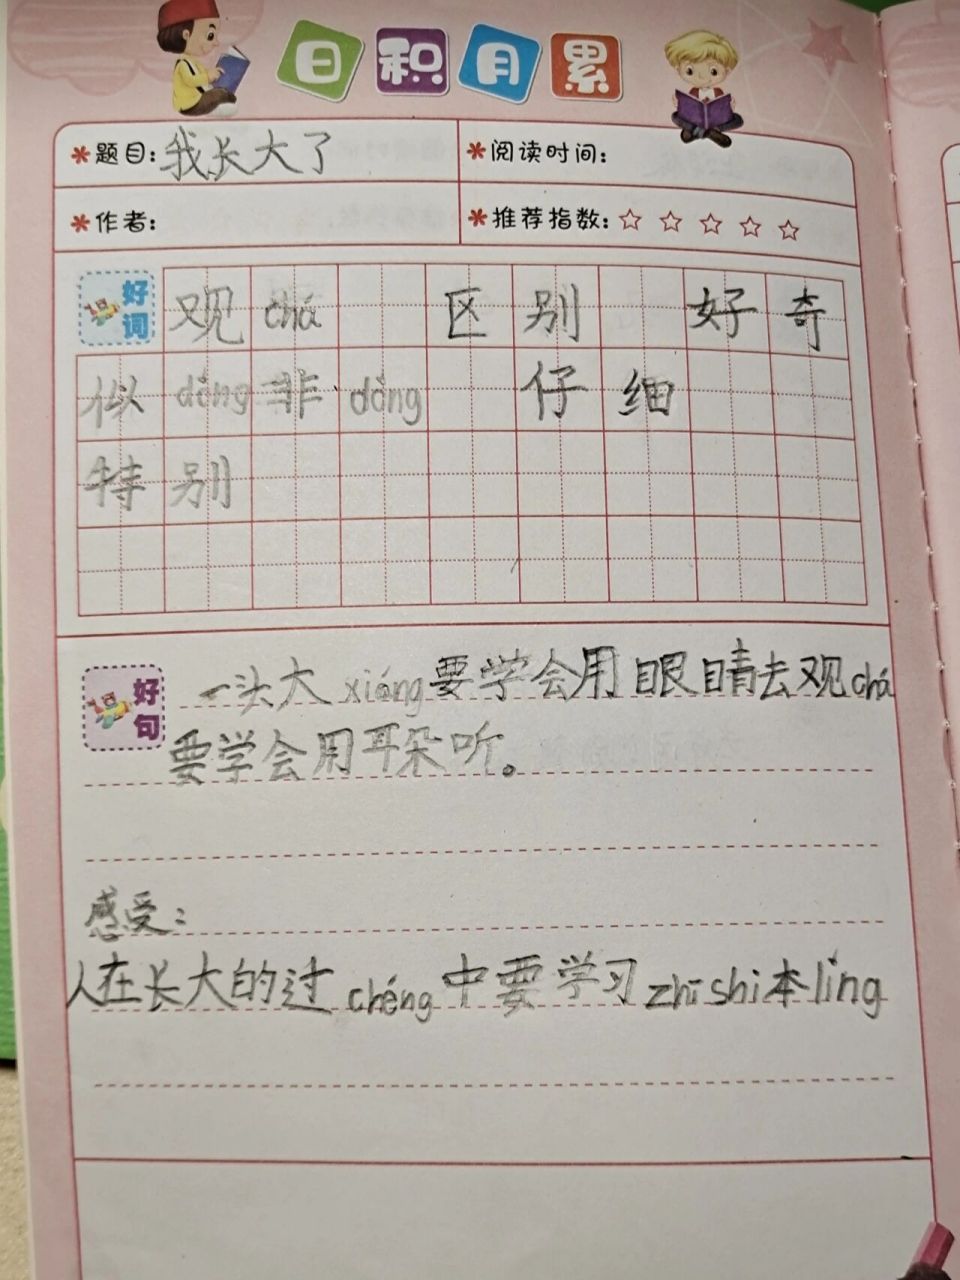 日积月累
题目：我长大了 阅读时间：
作者： 推荐指数：☆ ☆ ☆ ☆ ☆
好词 观chá 区别 好奇
似dǒng非dǒng 仔细
特别
好句 一头大xiàng要学会用眼睛去观chá
要学会用耳朵听。
感受：
人在长大的过chéng中要学习zhīshi本lǐng